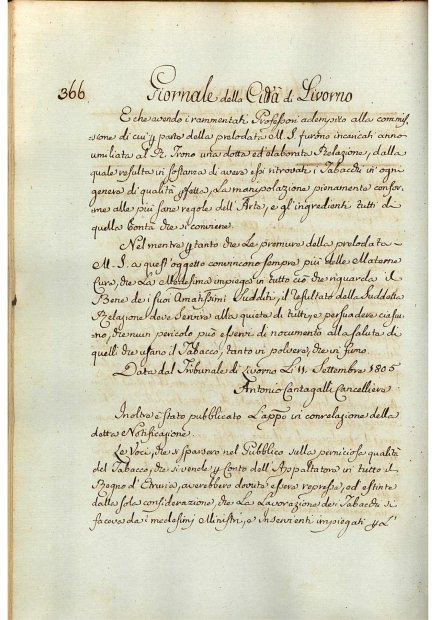 366 Giornale della Città di Livorno
E che avendo i rammentati Professori adempito alla commis,
sione di cui p parte della prelodata M. S. furono incaricati anno
umiliata al R. Trono una dotta ed elaborata Relazione, dalla
quale resulta in sostanza di avere essi ritrovati i Tabacchi in ogni
genere di qualità perfetta, La manipolazione pienamente confor,
me alle più sane regole dell'Arte, e gl'ingredienti tutti di
quella bontà che si conviene.
Nel mentre p tanto che Le premure della prelodata
M. S. a quest'oggetto convincono sempre più delle Materne
Cure, che La Medesima impiega in tutto ciò che riguarda il
Bene de i suoi Amatissimi Sudditi, il resultato della suddetta
Relazione deve servire alla quiete di tutti, e persuadere ciascu,
no, che niun pericolo può esservi di nocumento alla salute di
quelli che usano il Tabacco, tanto in polvere, che in fumo.
Data dal Tribunale di Livorno Li 11. Settembre 1805
Antonio Cantagalli Cancelliere
Inoltre è stato pubblicato L'appo in correlazione della
detta Notificazione.
Le Voci, che si sparsero nel Pubblico sulla perniciosa qualità
del Tabacco, che si vende p Conto dell'Appaltatore in tutto il
Regno d'Etruria, averebbero dovute essere represse, ed estinte
dalla sola considerazione, che La Lavorazione dei Tabacchi si
faceva da i medesimi Ministri, e Inservienti impiegati p L'